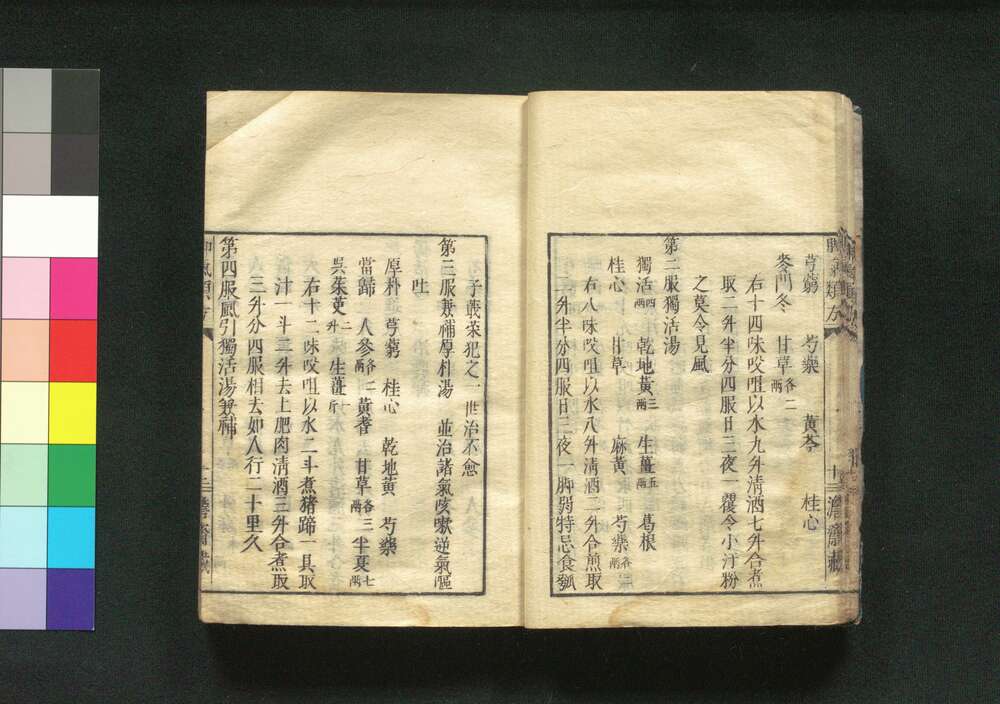 芎藭　芍藥　黃芩　桂心
麥門冬　甘草各二兩
右十四味㕮咀以水九升淸酒七升合煮
取二升半分四服日三夜一覆令小汗粉
之莫令見風
第二服獨活湯
獨活四兩　乾地黃三兩　生薑五兩　葛根
桂心　甘草　麻黃　芍藥各二兩
右八味㕮咀以水八升淸酒二升合煎取
二升半分四服日三夜一脚弱特忌食瓠
子蕺菜犯之一世治不愈
第三服兼補厚朴湯　並治諸氣咳嗽逆氣嘔
吐
厚朴　芎藭　桂心　乾地黃　芍藥
當歸　人參各二兩　黃耆　甘草各三兩　半夏七兩
吳茱萸二升　生薑一斤
右十二味㕮咀以水二斗煮猪蹄一具取
汁一斗二升去上肥肉淸酒三升合煮取
三升分四服相去如人行二十里久
第四服風引獨活湯兼補